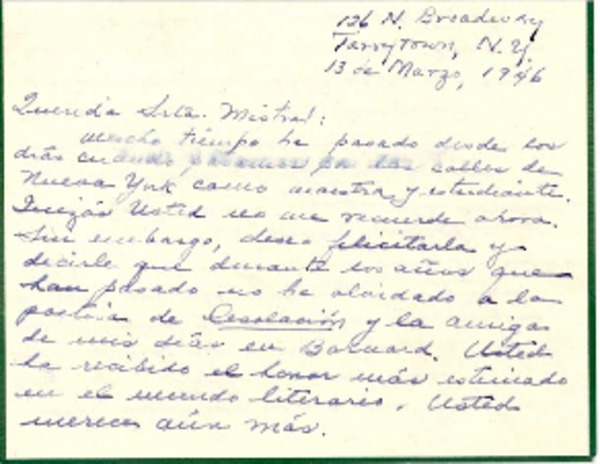 126 N. Broadway
Tarrytown, N.Y.
13 de Marzo, 1946
Querida Srta. Mistral:
Mucho tiempo ha pasado desde los
días cuando por las calles de
Nueva York como maestra y estudiante.
Quizás Usted no me recuerde ahora.
Sin embargo, deseo felicitarla y
decirle que durante los años que
han pasado no he olvidado a la
poetisa de Desolación y la amiga
de mis días en Barnard. Usted
ha recibido el honor más estimado
en el mundo literario. Usted
merece aún más.